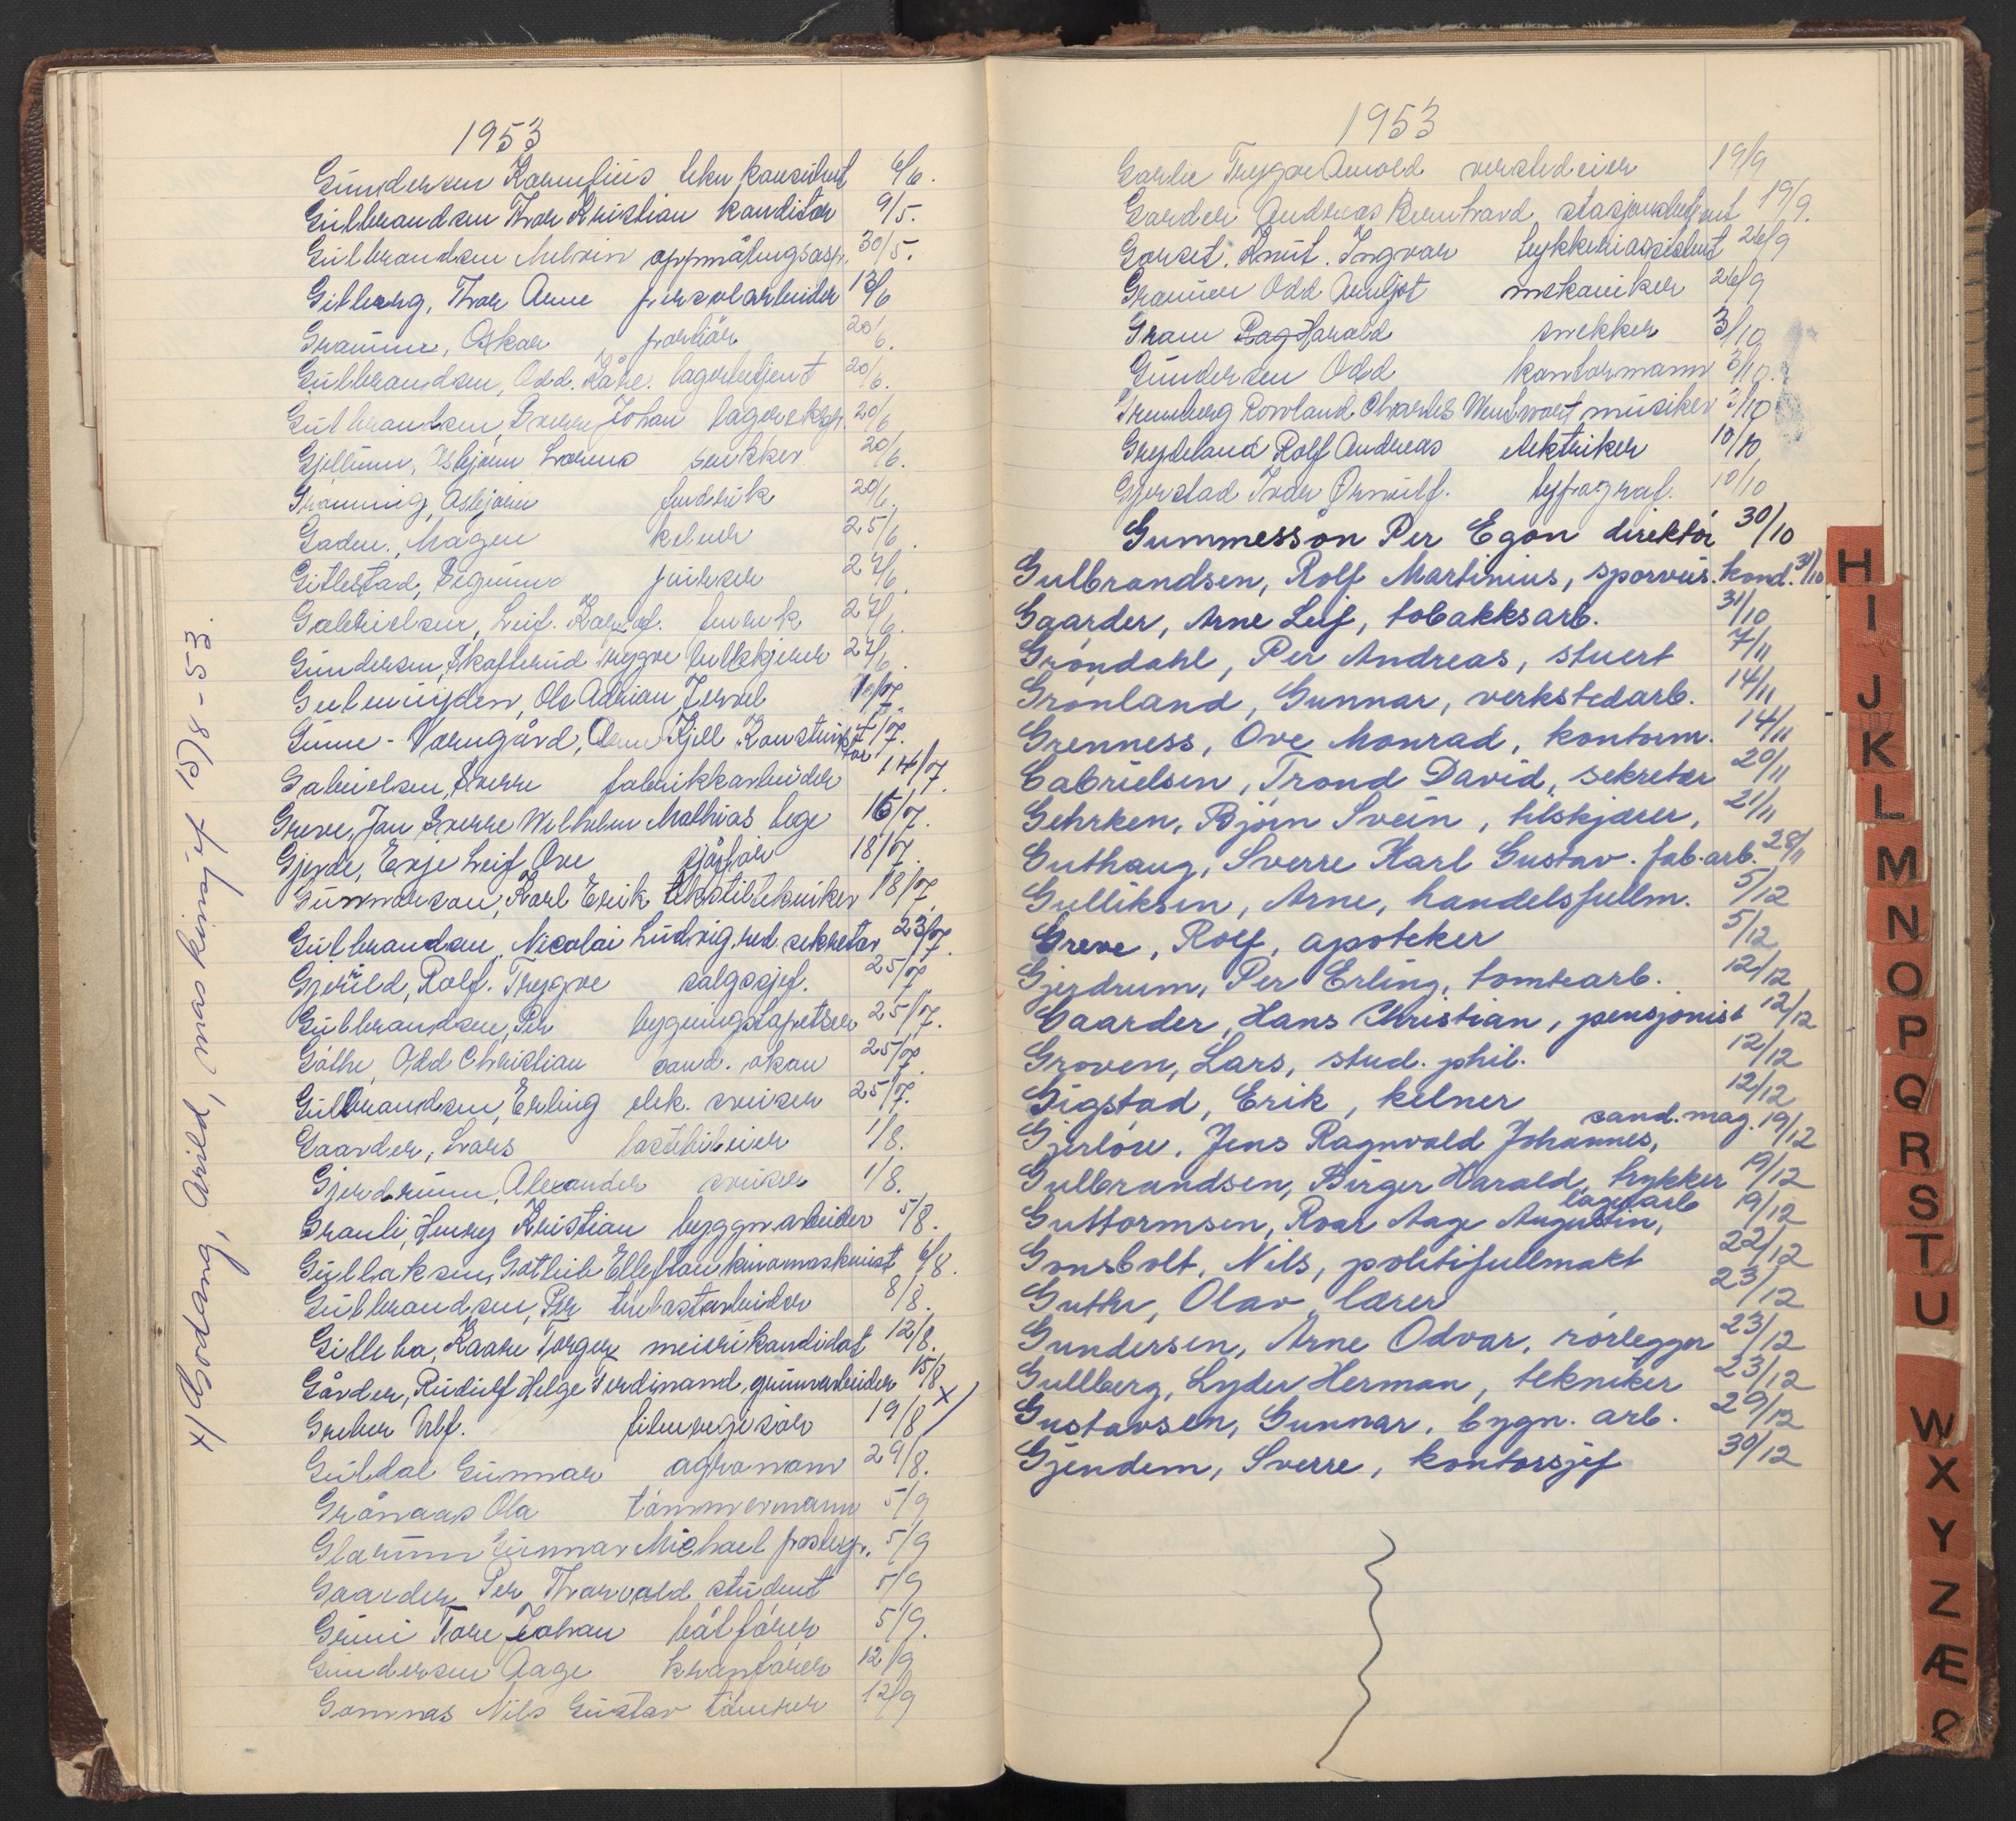 1953
Gundersen Kornelius tekn. konsulent 6/6.
Gulbrandsen Thor Kristian konditor 9/5.
Gulbrandsen Melvin oppmålingsasp. 30/5.
Gilberg, Thor Arne 13/6
Oskar portiør 20/6.
Gulbrandsen, Odd. Kåre. lagerbetjent 20/6.
Gulbrandsen, Sverre Johan lagereksp. 20/6
Gjellum, Asbjørn Lorens snekker 20/6.
Grønning, Asbjørn 20/6.
Gaden, Magen kelner 25/6.
Gitlestad, Sigmund pusser 27/6
Gabrielsen, Leif. 27/6.
Gundersen, Skofterud Trygve tillskjærer 27/6.
Ole Adrian 10/7.
Gune-Varngård, Arne Kjell Konstruktør 11/7.
Gabrielsen, Sverre fabrikkarbeider 14/7.
Greve, Jan Sverre Wilhelm Mathias lege 16/7.
Gjerde, Erje Leif Ove sjåfør 18/7.
Gunnarson, Karl Erik tekstiltekniker 18/7.
Gulbrandsen, Nicolai Ludvig. red. sekretær 23/7.
Gjeruld, Rolf. Trygve salgssjef. 25/7.
Gulbrandsen, Per bygningstapetserer 25/7.
Göthe, Odd Christian cand. økon 25/7.
Gulbrandsen, Erling elek. sveiser 25/7.
Gaarder, Lars lastebileier 1/8.
Gjerdrum, Alexander sveiser 1/8.
Grauli, Henry Kristian byggn. arbeider 5/8.
Gullaksen, Gotlieb Elleflau kinomaskinist 6/8.
Gulbrandsen, Per trelastarbeider 8/8.
Gilleba, Kaare Torger meierikandidat 12/8.
Gårder, Rudulf Helge Ferdinand, gummiarbeider 15/8 x)
Greber Ulf. filmregissør 19/8
Guldal Gunnar agronom 29/8.
Grånaas Ola tømmermann 5/9
Glarum Gunnar Michael postexp. 5/9
Gaarder Per Thorvald student 5/9
Gruni Tore Johan båtfører 5/9.
Gundersen Aage kranfører 12/9
Gomnas Nils Gustav tømrer 12/9
x) Godang, Arild, maskinsjef 15/8-53.
1953
Garlie Trygve Arnold verkstedeier 19/9
Garder Andreas Bernhard, stasjonsbetjent 19/9.
Gorset. Knut. Ingvar trykkeriassistent 26/9
Odd Arnljot mekaniker 26/9
Gram Harald snekker 3/10
Gundersen Odd kontormann 3/10.
Rowland Charles musiker 3/10
Grydeland Rolf Andreas elektriker 10/10
Gjerstad Ivar Ørnulf. typograf. 10/10
Gummesson Per Egon direktør 30/10
Gulbrandsen, Rolf Martinius, sporveis.kond. 31/10
Gaarder, Arne Leif, tobakksarb. 31/10
Grøndahl, Per Andreas, stuert 7/11
Grønland, Gunnar, verkstedarb. 14/11
Grenness, Ove Monrad, kontorm. 14/11
Gabrielsen, Trond David, sekretær 20/11
Gehrken, Bjørn Svein, tilskjærer, 21/11
Guthaug, Sverre Karl Gustav. fab.arb. 28/11
Gulliksen, Arne, handelsfullm. 5/12
Greve, Rolf, apoteker 5/12
Gjerdrum, Per Erling, tomtearb. 12/12
Gaarder, Hans Christian, pensjonist 12/12
Groven, Lars, stud. phil. 12/12
Gigstad, Erik, kelner 12/12
Gjerløw, Jens Ragnvald Johannes, cand. mag. 19/12
Gulbrandsen, Birger Harald, trykker 19/12
Guttormsen, Roar Aage Augustin, lagerarb 19/12
Gonsholt, Nils, politifullmekt 22/12
Guthe, Olav, lærer 23/12
Gundersen, Arne Odvar, rørlegger 23/12
Gullberg, Lyder Herman, tekniker 23/12
Gustavsen, Gunnar, bygn. arb. 29/12
Gjendem, Sverre, kontorsjef 30/12
H
I
J
K
L
M
N
O
P
Q
R
S
T
U
W
X
Y
Z
Æ
Ø